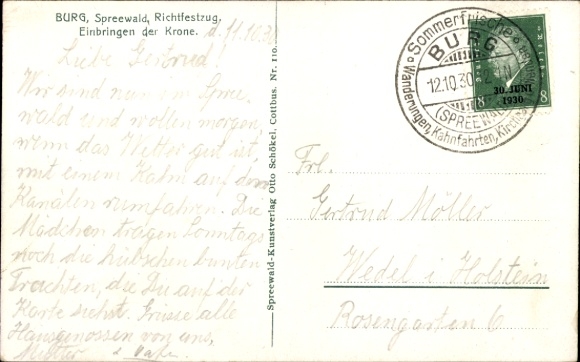 BURG, Spreewald, Richtfestzug.
Einbringen der Krone.
d. 11.10.30
Liebe Gertrud!
Wir sind nun im Spree-
wald und wollen morgen,
wenn das Wetter gut ist,
mit einem Kahn auf den
Kanälen rumfahren. Die
Mädchen tragen Sonntags
noch die hübschen bunten
Trachten, die Du auf der
Karte siehst. Grüsse alle
Hausgenossen von uns,
Mutter u Vater
Spreewald-Kunstverlag Otto Schökel, Cottbus. Nr. 110.
Sommerfrische
BURG
12.10.30
(SPREEWALD)
Wanderungen, Kahnfahrten,
30. JUNI
1930
8 8
Frl.
Gertrud Möller
Wedel i Holstein
Rosengarten 6